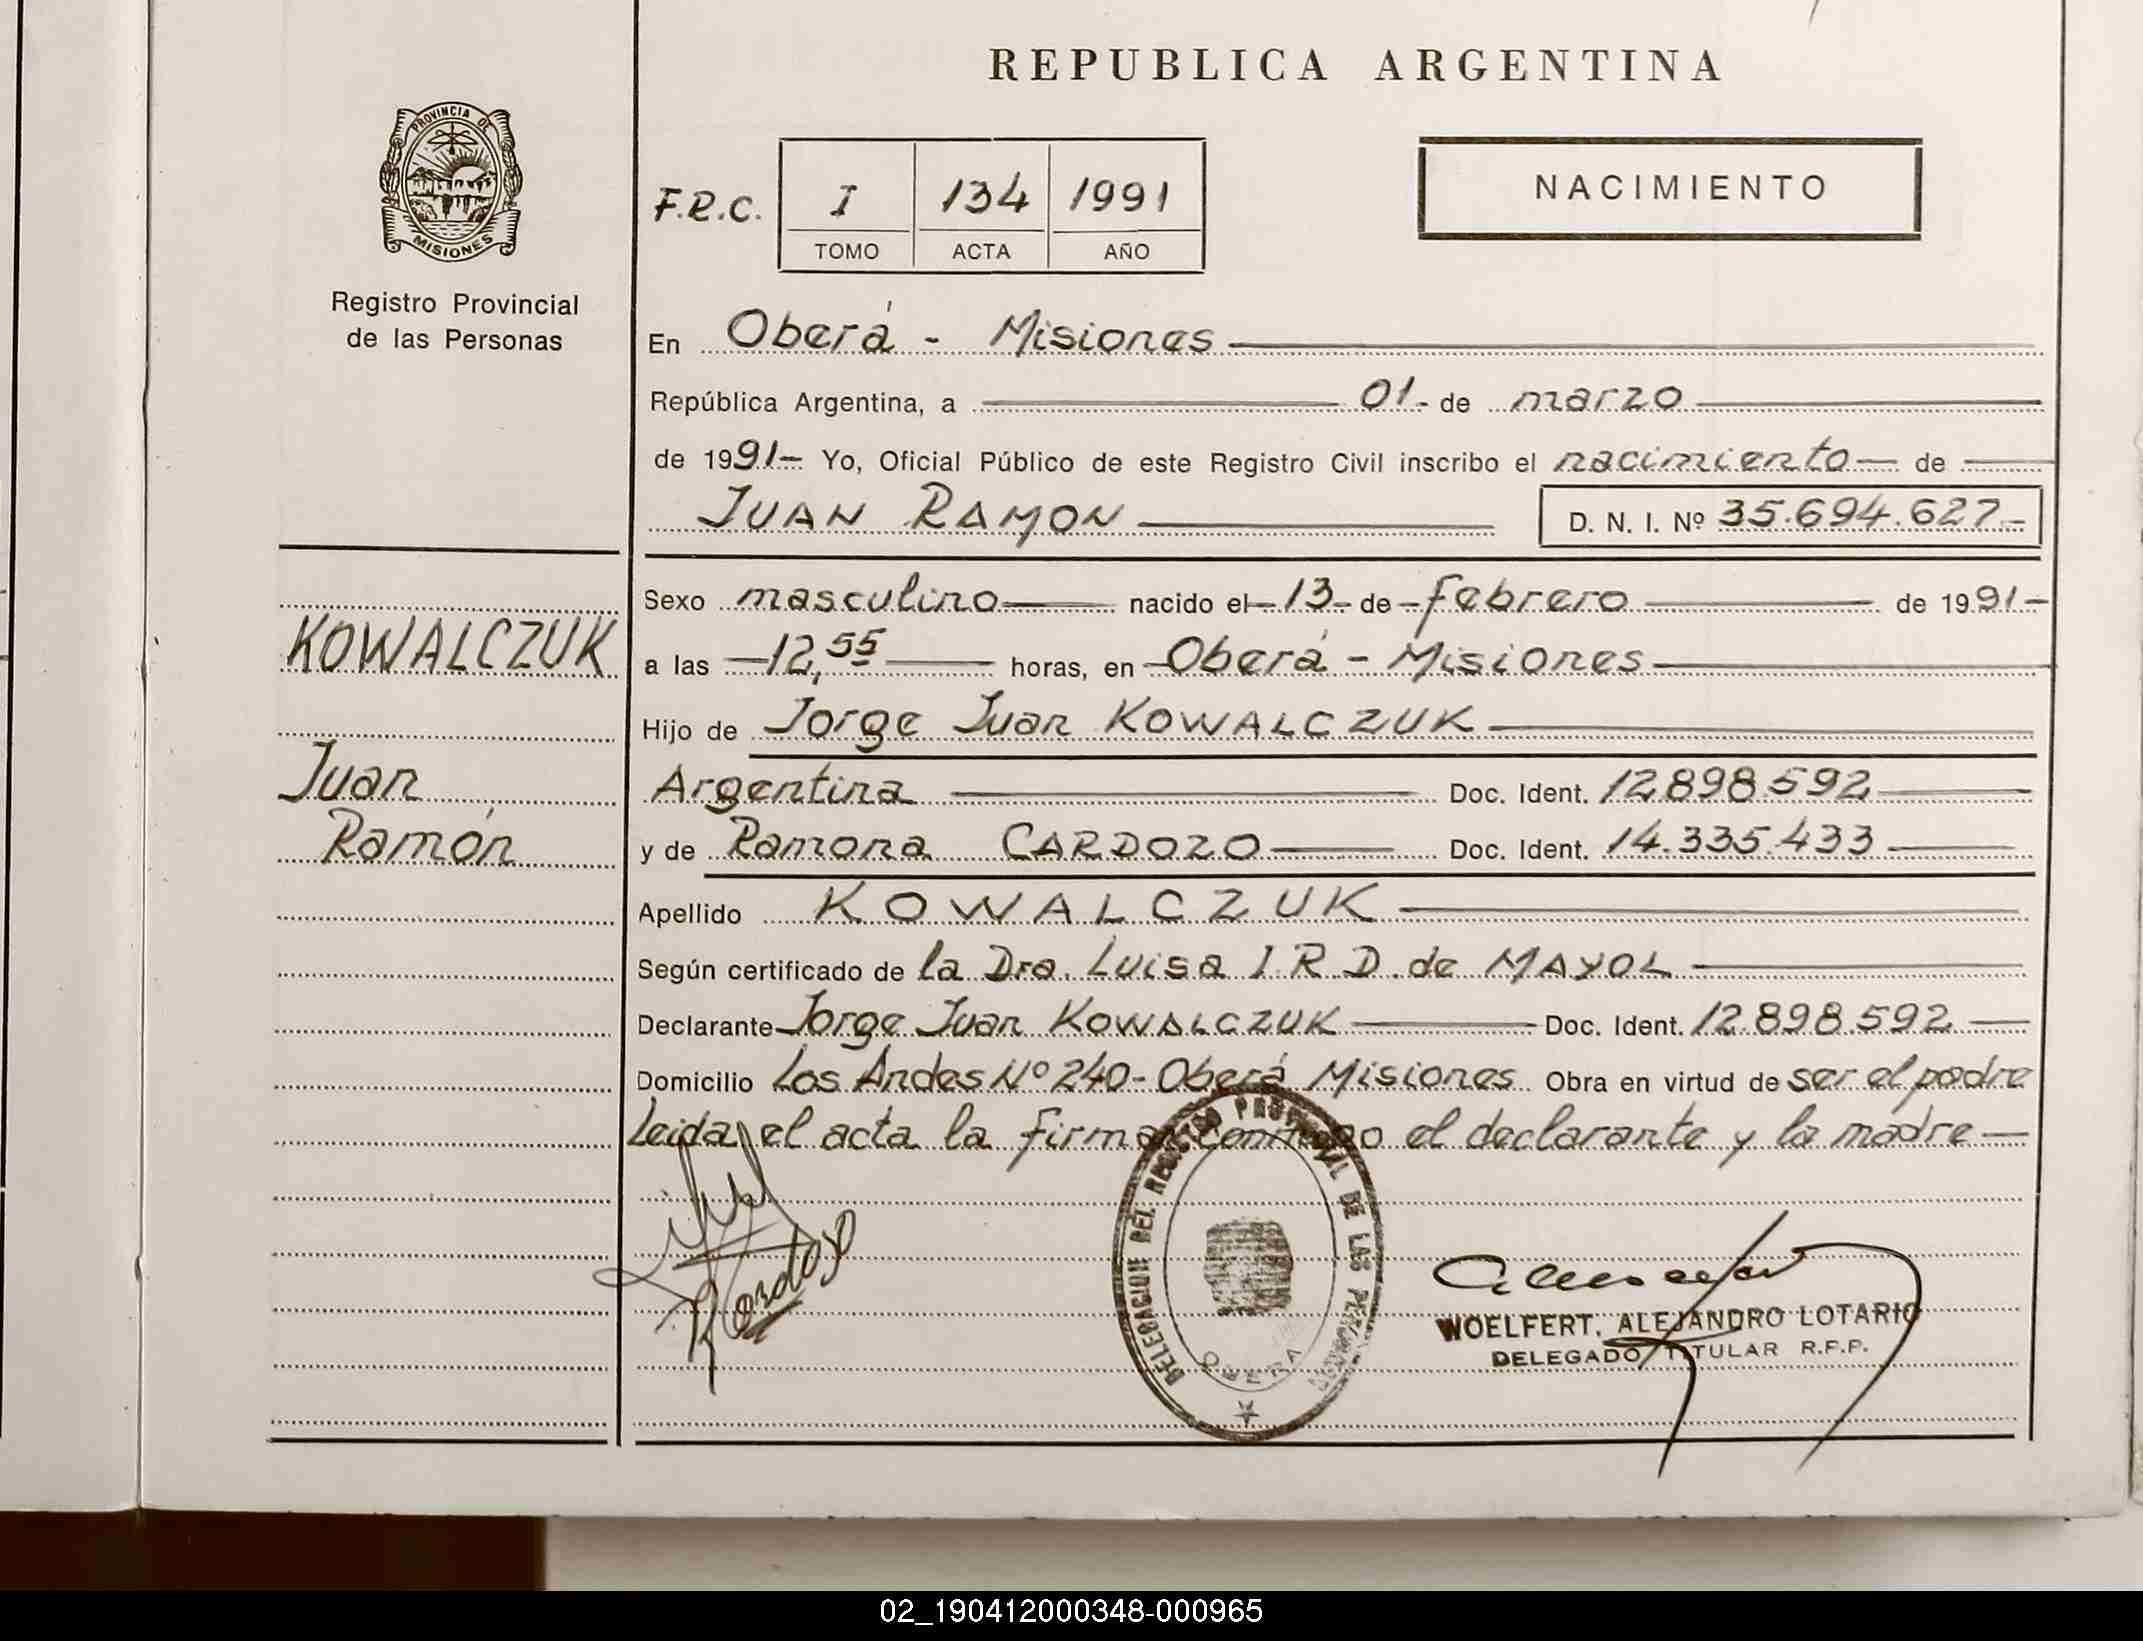 REPUBLICA ARGENTINA
PROVINCIA DE
MISIONES
Registro Provincial
de las Personas
F.R.C. I 134 1991
TOMO ACTA AÑO
NACIMIENTO
En Oberá - Misiones
República Argentina, a 01 - de marzo
de 1991 - Yo, Oficial Público de este Registro Civil inscribo el nacimiento de
JUAN RAMON D. N. I. Nº 35.694.627 -
Sexo masculino nacido el 13 - de - Febrero de 1991 -
KOWALCZUK
a las 12,55 horas, en Oberá - Misiones
Hijo de Jorge Juan KOWALCZUK
Juan
Argentina Doc. Ident. 12.898.592
Ramón
y de Ramona CARDOZO Doc. Ident. 14.335.433
Apellido KOWALCZUK
Según certificado de la Dra. Luisa I. R. D. de MAYOL
Declarante Jorge Juan KOWALCZUK Doc. Ident. 12.898.592
Domicilio Los Andes Nº 240 - Oberá Misiones Obra en virtud de ser el padre
Leida el acta la firman conmigo el declarante y la madre
DELEGACION DEL REGISTRO PROVINCIAL DE LAS PERSONAS
OBERA
R Cardozo
WOELFERT, ALEJANDRO LOTARIO
DELEGADO TITULAR R.P.P.
02_190412000348-000965